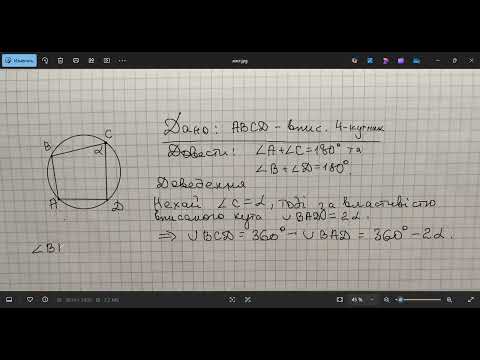 Изменить
Дано: ABCD - впис. 4-кутник
Довести: ∠A+∠C=180° та
∠B+∠D=180°.
Доведення
Нехай ∠C=α, тоді за властивістю
вписаного кута ∪BAD=2α.
⇒ ∪BCD=360°-∪BAD=360°-2α.
B
C
α
A
D
∠BI
45 %